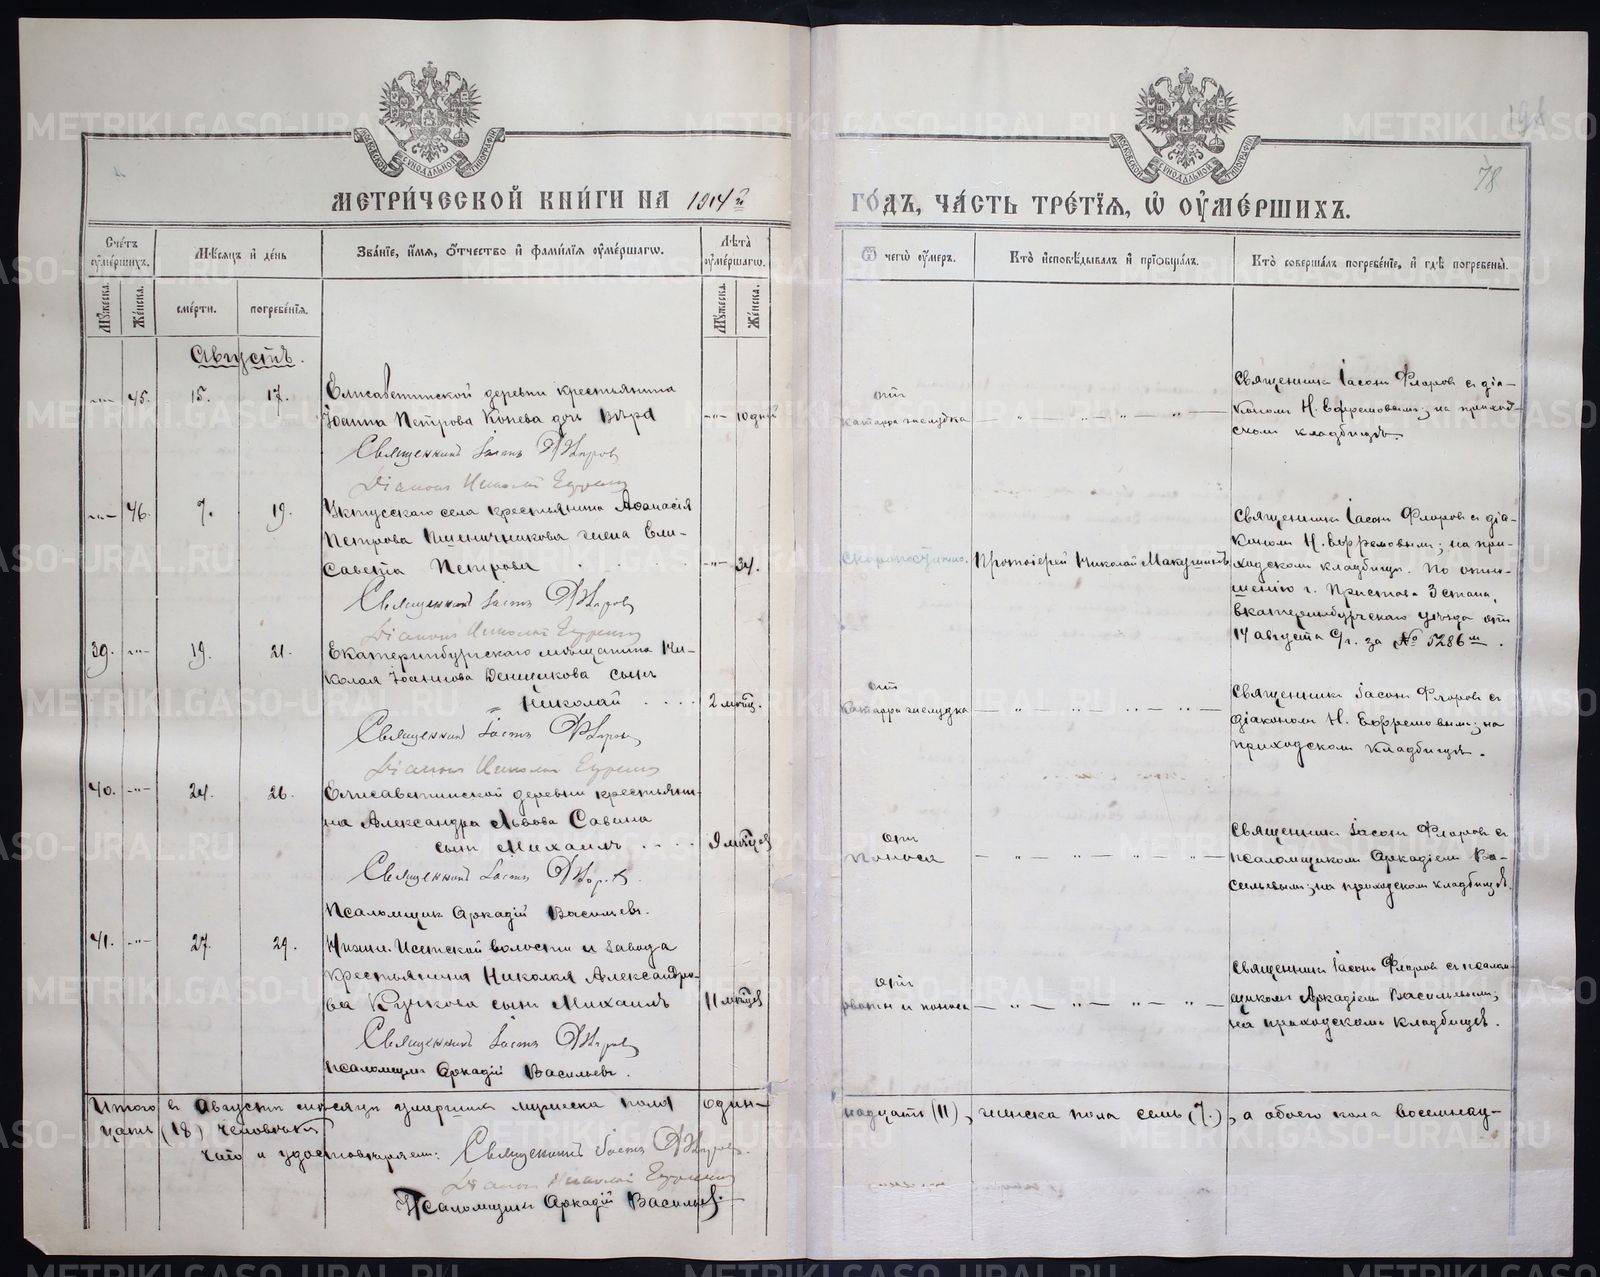 МЕТРИ́ЧЕСКОЙ КНИ́ГИ НА 1904й
ГО́ДЪ, ЧА́СТЬ ТРЕ́ТІЯ, Ѽ ОУ҆МЕ́РШИХЪ.
78
Сче́тъ оу҆ме́ршихъ.
Мѣ́сяцъ и҆ де́нь
Зва́нїе, и҆́мя, ѻ҆́тчество и҆ фами́лїя оу҆ме́ршагѡ.
Лѣ́та оу҆ме́ршагѡ.
Ѿ чегѡ̀ оу҆́меръ.
Кто̀ и҆сповѣ́дывалъ и҆ прїѻбща́лъ.
Кто̀ соверша́лъ погребе́нїе, и҆ гдѣ̀ погребены̀.
Мꙋ́жеска.
Же́нска.
сме́рти.
погребе́нїя.
Мꙋ́жеска.
Же́нска.
Августъ.
45. 15. 17. Елисаветинской деревни крестьянина
Іоанна Петрова Конева дочь Вѣра 10 дней
Священникъ Іасонъ Флоровъ
Діаконъ Николай Ефремовъ
отъ
катарра желудка
Священникъ Іасонъ Флоровъ съ діа-
кономъ Н. Ефремовымъ; на приход-
скомъ кладбищѣ.
46. 7. 19. Уктусскаго села крестьянина Аѳанасія
Петрова Пшеничникова жена Ели-
савета Петрова 34.
Священникъ Іасонъ Флоровъ
Діаконъ Николай Ефремовъ
Скоропостижно. Протоіерей Николай Макушинъ
Священникъ Іасонъ Флоровъ съ діа-
кономъ Н. Ефремовымъ; на при-
ходскомъ кладбищѣ. По отно-
шенію г. Пристава 3 стана,
Екатеринбургскаго уѣзда отъ
14 августа с/г. за № 5286м.
39. 19. 21. Екатеринбургскаго мѣщанина Ни-
колая Іоаннова Денщикова сынъ
Николай 2 мѣсц.
Священникъ Іасонъ Флоровъ
Діаконъ Николай Ефремовъ
отъ
катарра желудка
Священникъ Іасонъ Флоровъ съ
діакономъ Н. Ефремовымъ; на
приходскомъ кладбищѣ.
40. 24. 26. Елисаветинской деревни крестьяни-
на Александра Львова Савина
сынъ Михаилъ 9 мѣсцев
Священникъ Іасонъ Флоровъ.
Псаломщикъ Аркадій Васильевъ.
отъ
поноса
Священникъ Іасонъ Флоровъ съ
псаломщикомъ Аркадіемъ Ва-
сильевымъ; на приходскомъ кладбищѣ.
41. 27. 29. Нижне-Исетской волости и завода
крестьянина Николая Александро-
ва Кучкова сынъ Михаилъ 11 мѣсцев
Священникъ Іасонъ Флоровъ
Псаломщикъ Аркадій Васильевъ.
отъ
рвоты и поноса
Священникъ Іасонъ Флоровъ съ псалом-
щикомъ Аркадіемъ Васильевымъ;
на приходскомъ кладбищѣ.
Итого въ Августѣ мѣсяцѣ умершихъ мужеска пола один-
надцать (11), женска пола семь (7.), а обоего пола восемнад-
цать (18) человѣкъ.
Чего и удостовѣряемъ: Священникъ Іасонъ Флоровъ.
Діаконъ Николай Ефремовъ
Псаломщикъ Аркадій Васильевъ.
METRIKI.GASO-URAL.RU